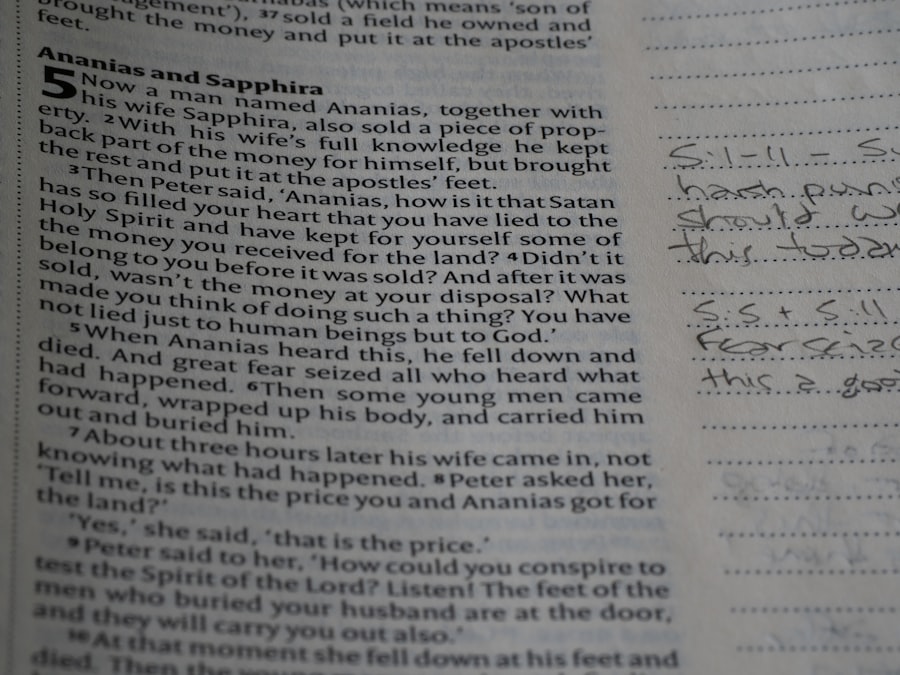 (which means 'son of
37 sold a field he owned and
brought the money and put it at the apostles'
feet.
Ananias and Sapphira
5 Now a man named Ananias, together with
his wife Sapphira, also sold a piece of prop-
erty. 2 With his wife's full knowledge he kept
back part of the money for himself, but brought
the rest and put it at the apostles' feet.
3 Then Peter said, 'Ananias, how is it that Satan
has so filled your heart that you have lied to the
Holy Spirit and have kept for yourself some of
the money you received for the land? 4 Didn't it
belong to you before it was sold? And after it was
sold, wasn't the money at your disposal? What
made you think of doing such a thing? You have
not lied just to human beings but to God.'
5 When Ananias heard this, he fell down and
died. And great fear seized all who heard what
had happened. 6 Then some young men came
forward, wrapped up his body, and carried him
out and buried him.
7 About three hours later his wife came in, not
knowing what had happened. 8 Peter asked her,
'Tell me, is this the price you and Ananias got for
the land?'
'Yes,' she said, 'that is the price.'
9 Peter said to her, 'How could you conspire to
test the Spirit of the Lord? Listen! The feet of the
men who buried your husband are at the door,
and they will carry you out also.'
10 At that moment she fell down at his feet and
died. Then the
5:1-11 -
harsh
should
this today
5:5 + 5:11
Fear
this a